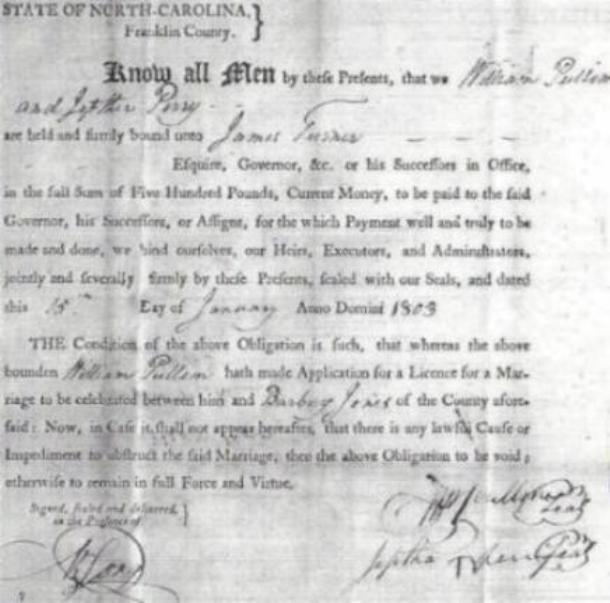 STATE OF NORTH-CAROLINA, }
Franklin County. }
Know all Men by these Presents, that we William Pullem
and Jepther Perry
are held and firmly bound unto James Turner
Esquire, Governor, &c. or his Successors in Office,
in the full Sum of Five Hundred Pounds, Current Money, to be paid to the said
Governor, his Successors, or Assigns, for the which Payment well and truly to be
made and done, we bind ourselves, our Heirs, Executors, and Administrators,
jointly and severally firmly by these Presents, sealed with our Seals, and dated
this 15th Day of January Anno Domini 1803
THE Condition of the above Obligation is such, that whereas the above
bounden William Pullem hath made Application for a Licence for a Mar-
riage to be celebrated between him and Barbery Jones of the County afore-
said: Now, in Case it shall not appear hereafter, that there is any lawful Cause or
Impediment to obstruct the said Marriage, then the above Obligation to be void;
otherwise to remain in full Force and Virtue.
Signed, sealed and delivered, }
in the Presence of }
Seal
Seal